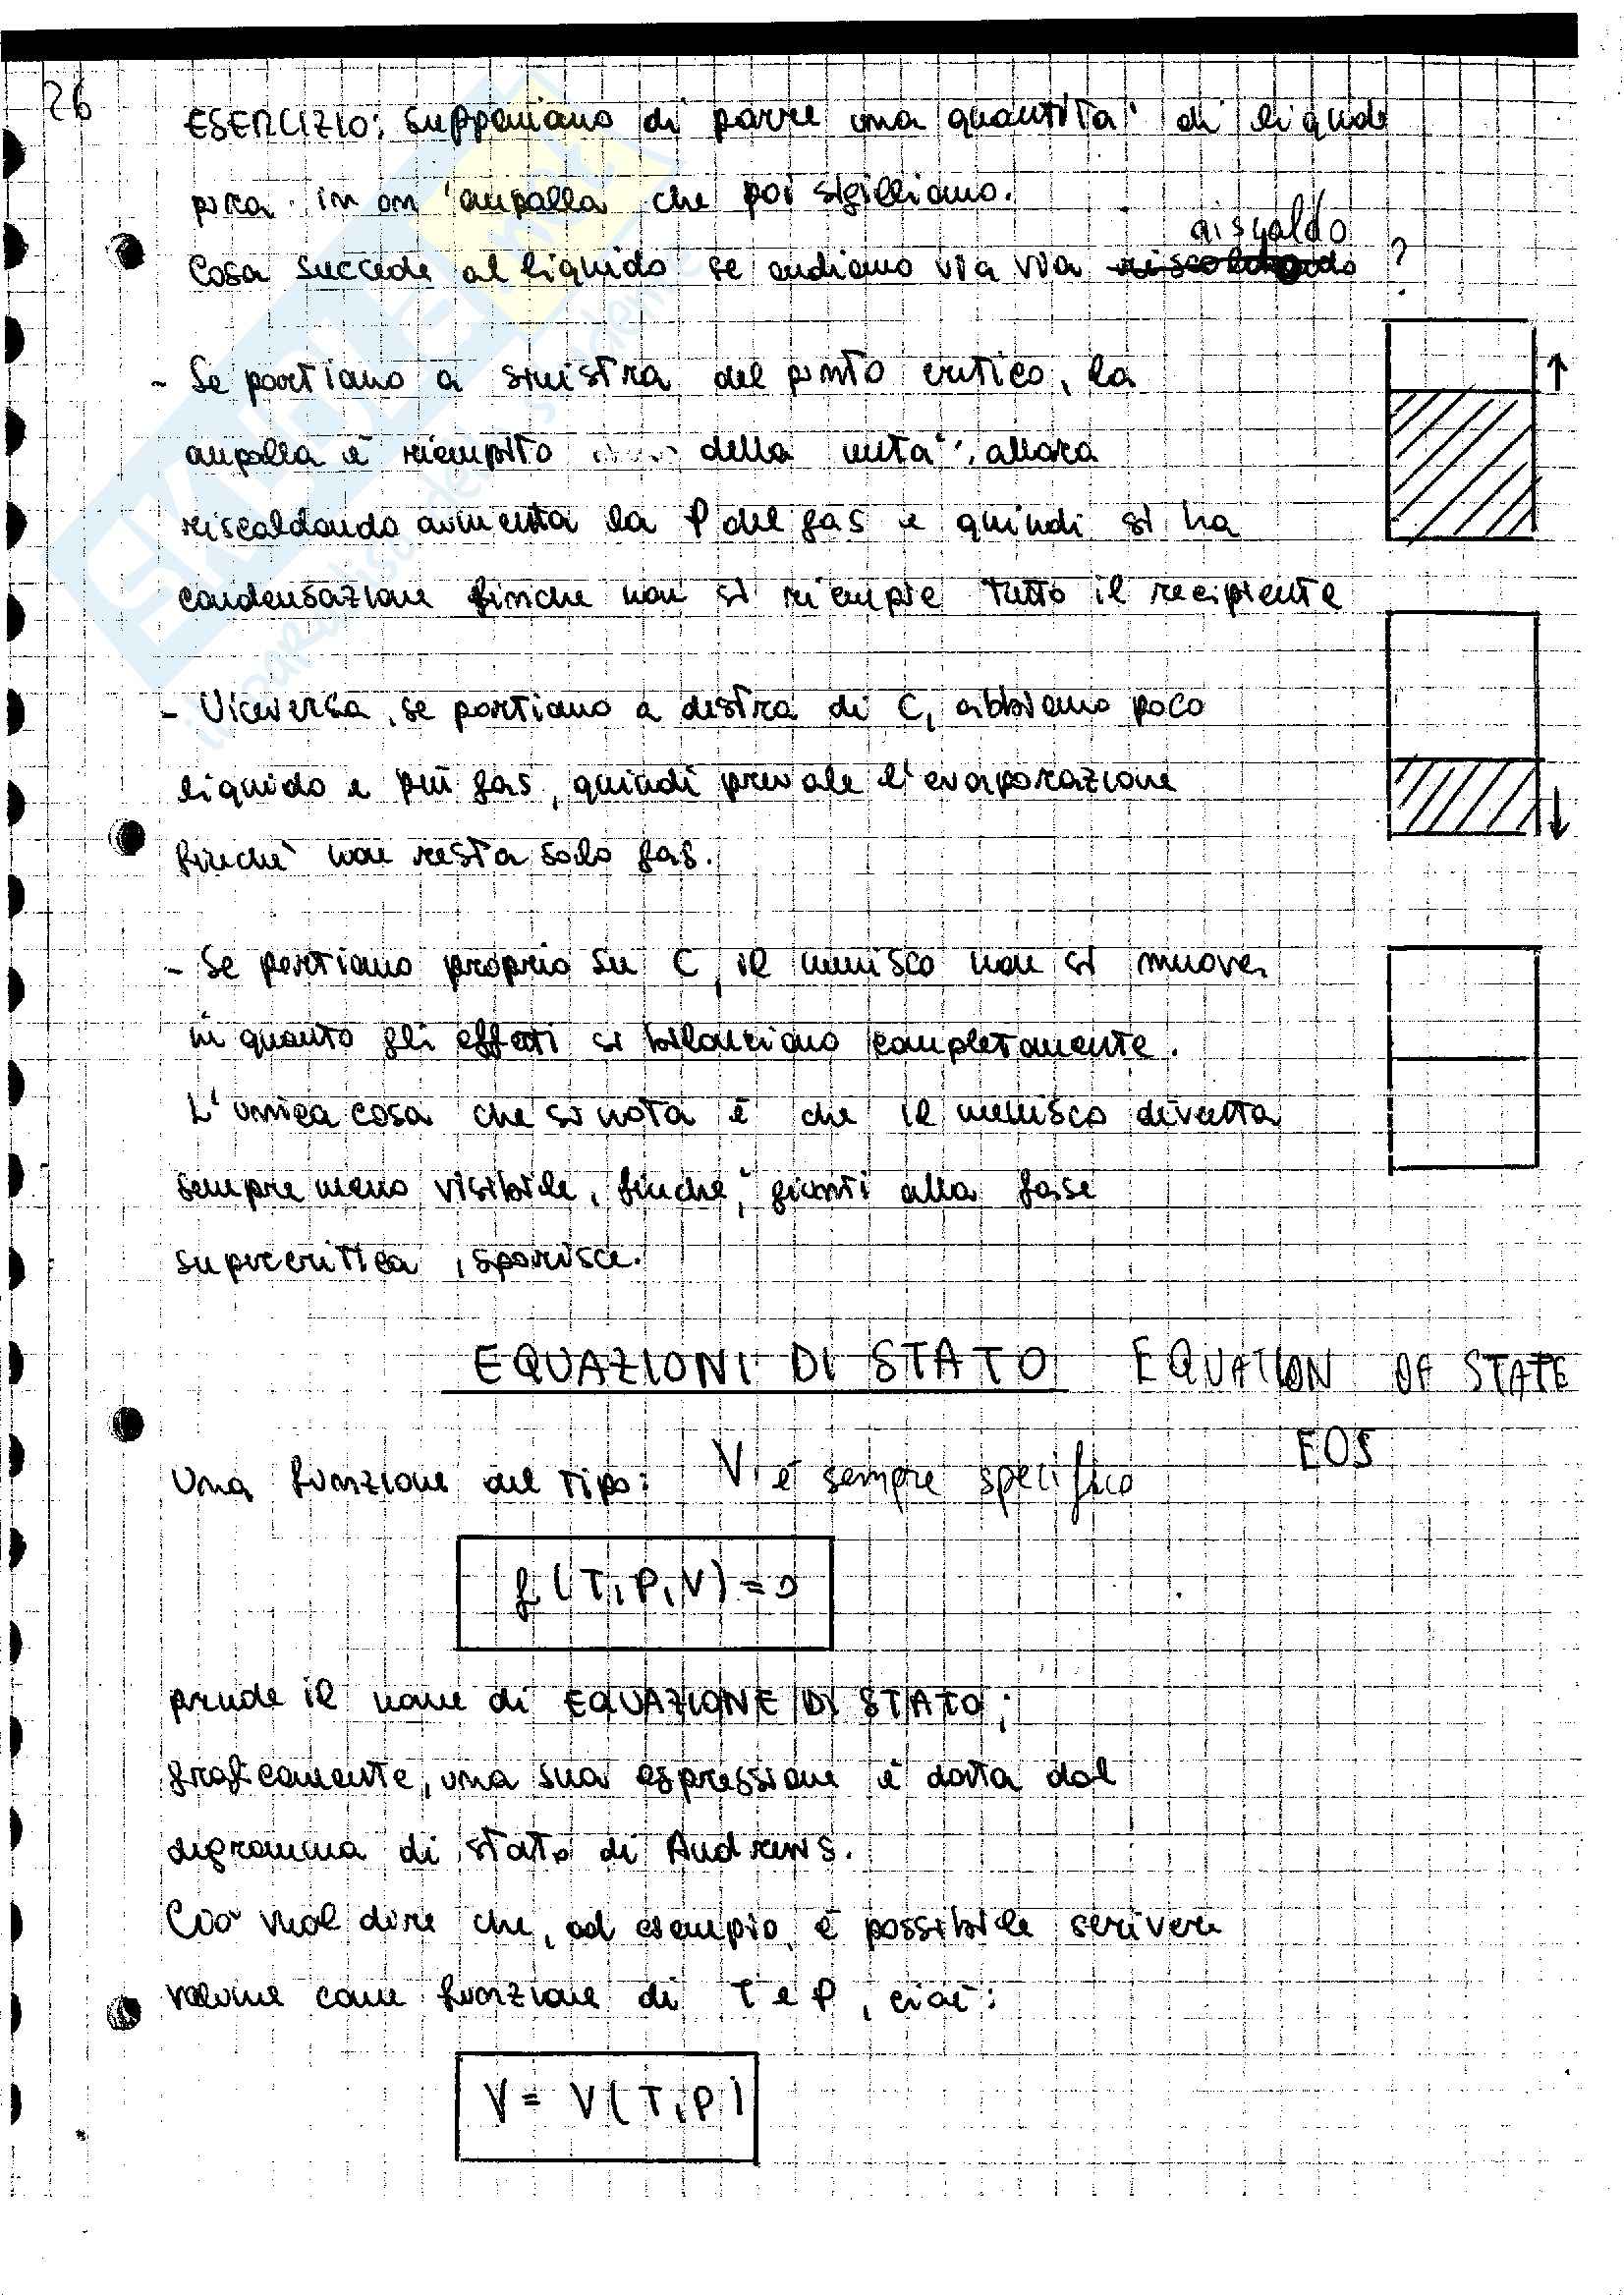 26
ESERCIZIO: Supponiamo di porre una quantità di liquido
pura in un'ampolla che poi sigilliamo.
riscaldo
Cosa succede al liquido se andiamo via via riscaldando ?
- Se partiamo a sinistra del punto critico, la
ampolla è riempito della metà, allora
riscaldando aumenta la P del gas e quindi si ha
condensazione finche non si riempie tutto il recipiente
- Viceversa, se partiamo a destra di C, abbiamo poco
liquido e più gas, quindi prevale l'evaporazione
finchè non resta solo gas.
- Se partiamo proprio su C, il menisco non si muove,
in quanto gli effetti si bilanciano completamente.
L'unica cosa che si nota è che il menisco diventa
sempre meno visibile, finchè, giunti alla fase
supercritica, sparisce.
EQUAZIONI DI STATO EQUATION OF STATE
EOS
Una funzione del tipo: V è sempre specifico
f(T,P,V)=0
prende il nome di EQUAZIONE DI STATO;
graficamente, una sua espressione è data dal
digramma di stato di Andrews.
Ciò vuol dire che, ad esempio, è possibile scrivere
volume come funzione di T e P, cioè:
V = V(T,P)